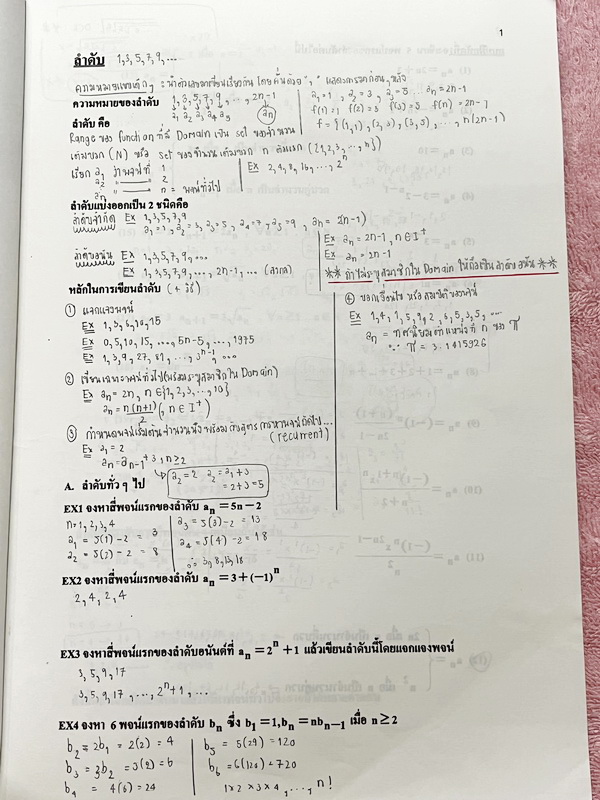 1
ลำดับ 1,3,5,7,9,...
ความหมายของลำดับ 1,3,5,7,9,...,2n-1
a₁ a₂ a₃ a₄ a₅ aₙ
a₁=1, a₂=3, a₃=5...aₙ=2n-1
f(1)=1 f(2)=3 f(3)=5 f(n)=2n-1
ลำดับ คือ
f={(1,1),(2,3),(3,5),...,
Range ของ function ที่มี Domain เป็น set ของจำนวน
เต็มบวก (N) หรือ set ของจำนวนเต็มบวก n ตัวแรก ({1,2,3,...,n})
เรียก a₁ ว่าพจน์ที่ 1
a₂ 2
aₙ n = พจน์ทั่วไป
Ex 2,4,8,16,...,2ⁿ
ลำดับแบ่งออกเป็น 2 ชนิดคือ
ลำดับจำกัด Ex 1,3,5,7,9
a₁=1, a₂=3, a₃=5, a₄=7, a₅=9, aₙ=2n-1)
ลำดับอนันต์ Ex 1,3,5,7,9,...
Ex 1,3,5,7,9,...,2n-1,... (สากล)
Ex aₙ=2n-1, n∈I⁺
Ex aₙ=2n-1
** ถ้าไม่ระบุสมาชิกใน Domain ให้ถือเป็นลำดับอนันต์ **
หลักในการเขียนลำดับ (4 วิธี)
① แจกแจงพจน์
Ex 1,3,6,10,15
Ex 0,5,10,15,...,5n-5,...,1975
Ex 1,3,9,27,81,...,3ⁿ⁻¹,...
② เขียนเฉพาะพจน์ทั่วไป(พร้อมระบุสมาชิกใน Domain)
Ex aₙ=2n, n∈{1,2,3,...,10}
aₙ=n(n+1)/2, n∈I⁺
③ กำหนดพจน์เริ่มต้น
(recurrent)
Ex a₁=2
aₙ=aₙ₋₁+3, n≥2
a₂=2 a₂=a₁+3
=2+3=5
④ บอกเงื่อนไข หรือ สมบัติของพจน์
Ex 1,4,1,5,9,2,6,5,3,5,...
aₙ = ทศนิยมตำแหน่งที่ n ของ π
∵ π = 3.1415926
A. ลำดับทั่ว ๆ ไป
EX1 จงหาสี่พจน์แรกของลำดับ aₙ = 5n − 2
n=1,2,3,4
a₁ = 5(1)-2 = 3
a₂ = 5(2)-2 = 8
a₃ = 5(3)-2 = 13
a₄ = 5(4)-2 = 18
∴ 3,8,13,18
EX2 จงหาสี่พจน์แรกของลำดับ aₙ = 3 + (−1)ⁿ
2,4,2,4
EX3 จงหาสี่พจน์แรกของลำดับอนันต์ที่ aₙ = 2ⁿ + 1 แล้วเขียนลำดับนี้โดยแจกแจงพจน์
3,5,9,17
3,5,9,17,...,2ⁿ+1,...
EX4 จงหา 6 พจน์แรกของลำดับ bₙ ซึ่ง b₁ = 1, bₙ = nbₙ₋₁ เมื่อ n ≥ 2
b₃ = 3b₂ = 3(2) = 6
b₄ = 4(6) = 24
b₆ = 6(120) = 720
1×2×3×4,...,n!